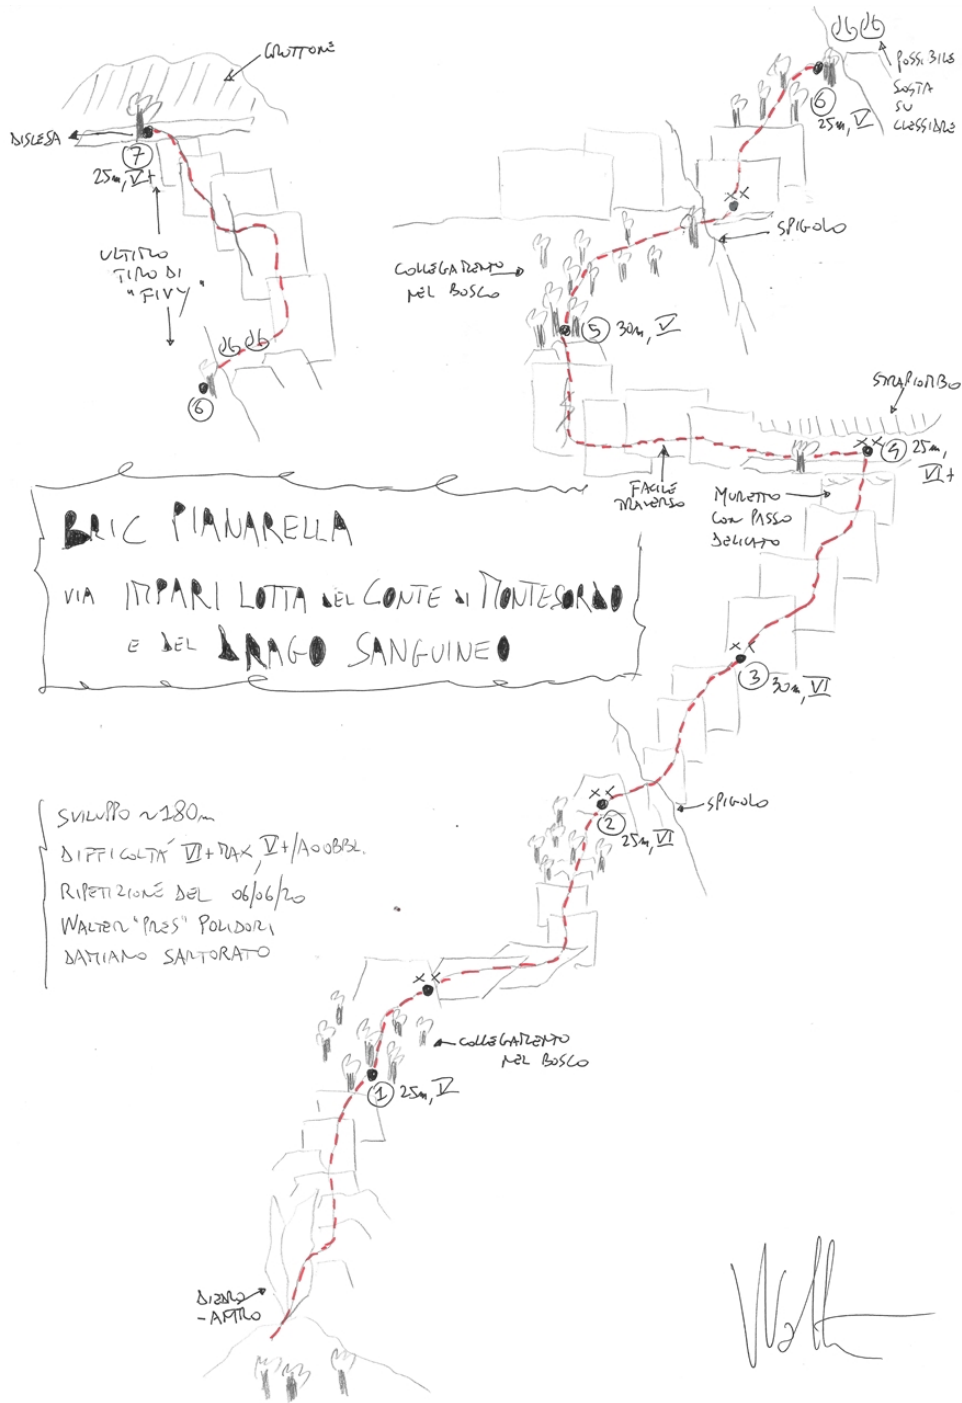 GROTTONE
DISCESA
7
25m, V+
ULTIMO
TIRO DI
"FIVY"
6
POSSIBILE
SOSTA
SU
CLESSIDRE
6
25m, V
SPIGOLO
COLLEGAMENTO
NEL BOSCO
5 30m, V
STRAPIOMBO
4 25m,
VI+
FACILE
TRAVERSO
MURETTO
CON PASSO
DELICATO
BRIC PIANARELLA
VIA IMPARI LOTTA DEL CONTE DI MONTESORDO
E DEL DRAGO SANGUINEO
3 30m, VI
SPIGOLO
2
25m, VI
SVILUPPO ~180m
DIFFICOLTÀ VI+ MAX, V+/A0 OBBL.
RIPETIZIONE DEL 06/06/20
WALTER "PRES" POLIDORI
DAMIANO SARTORATO
COLLEGAMENTO
NEL BOSCO
1 25m, V
DIEDRO
-ANTRO